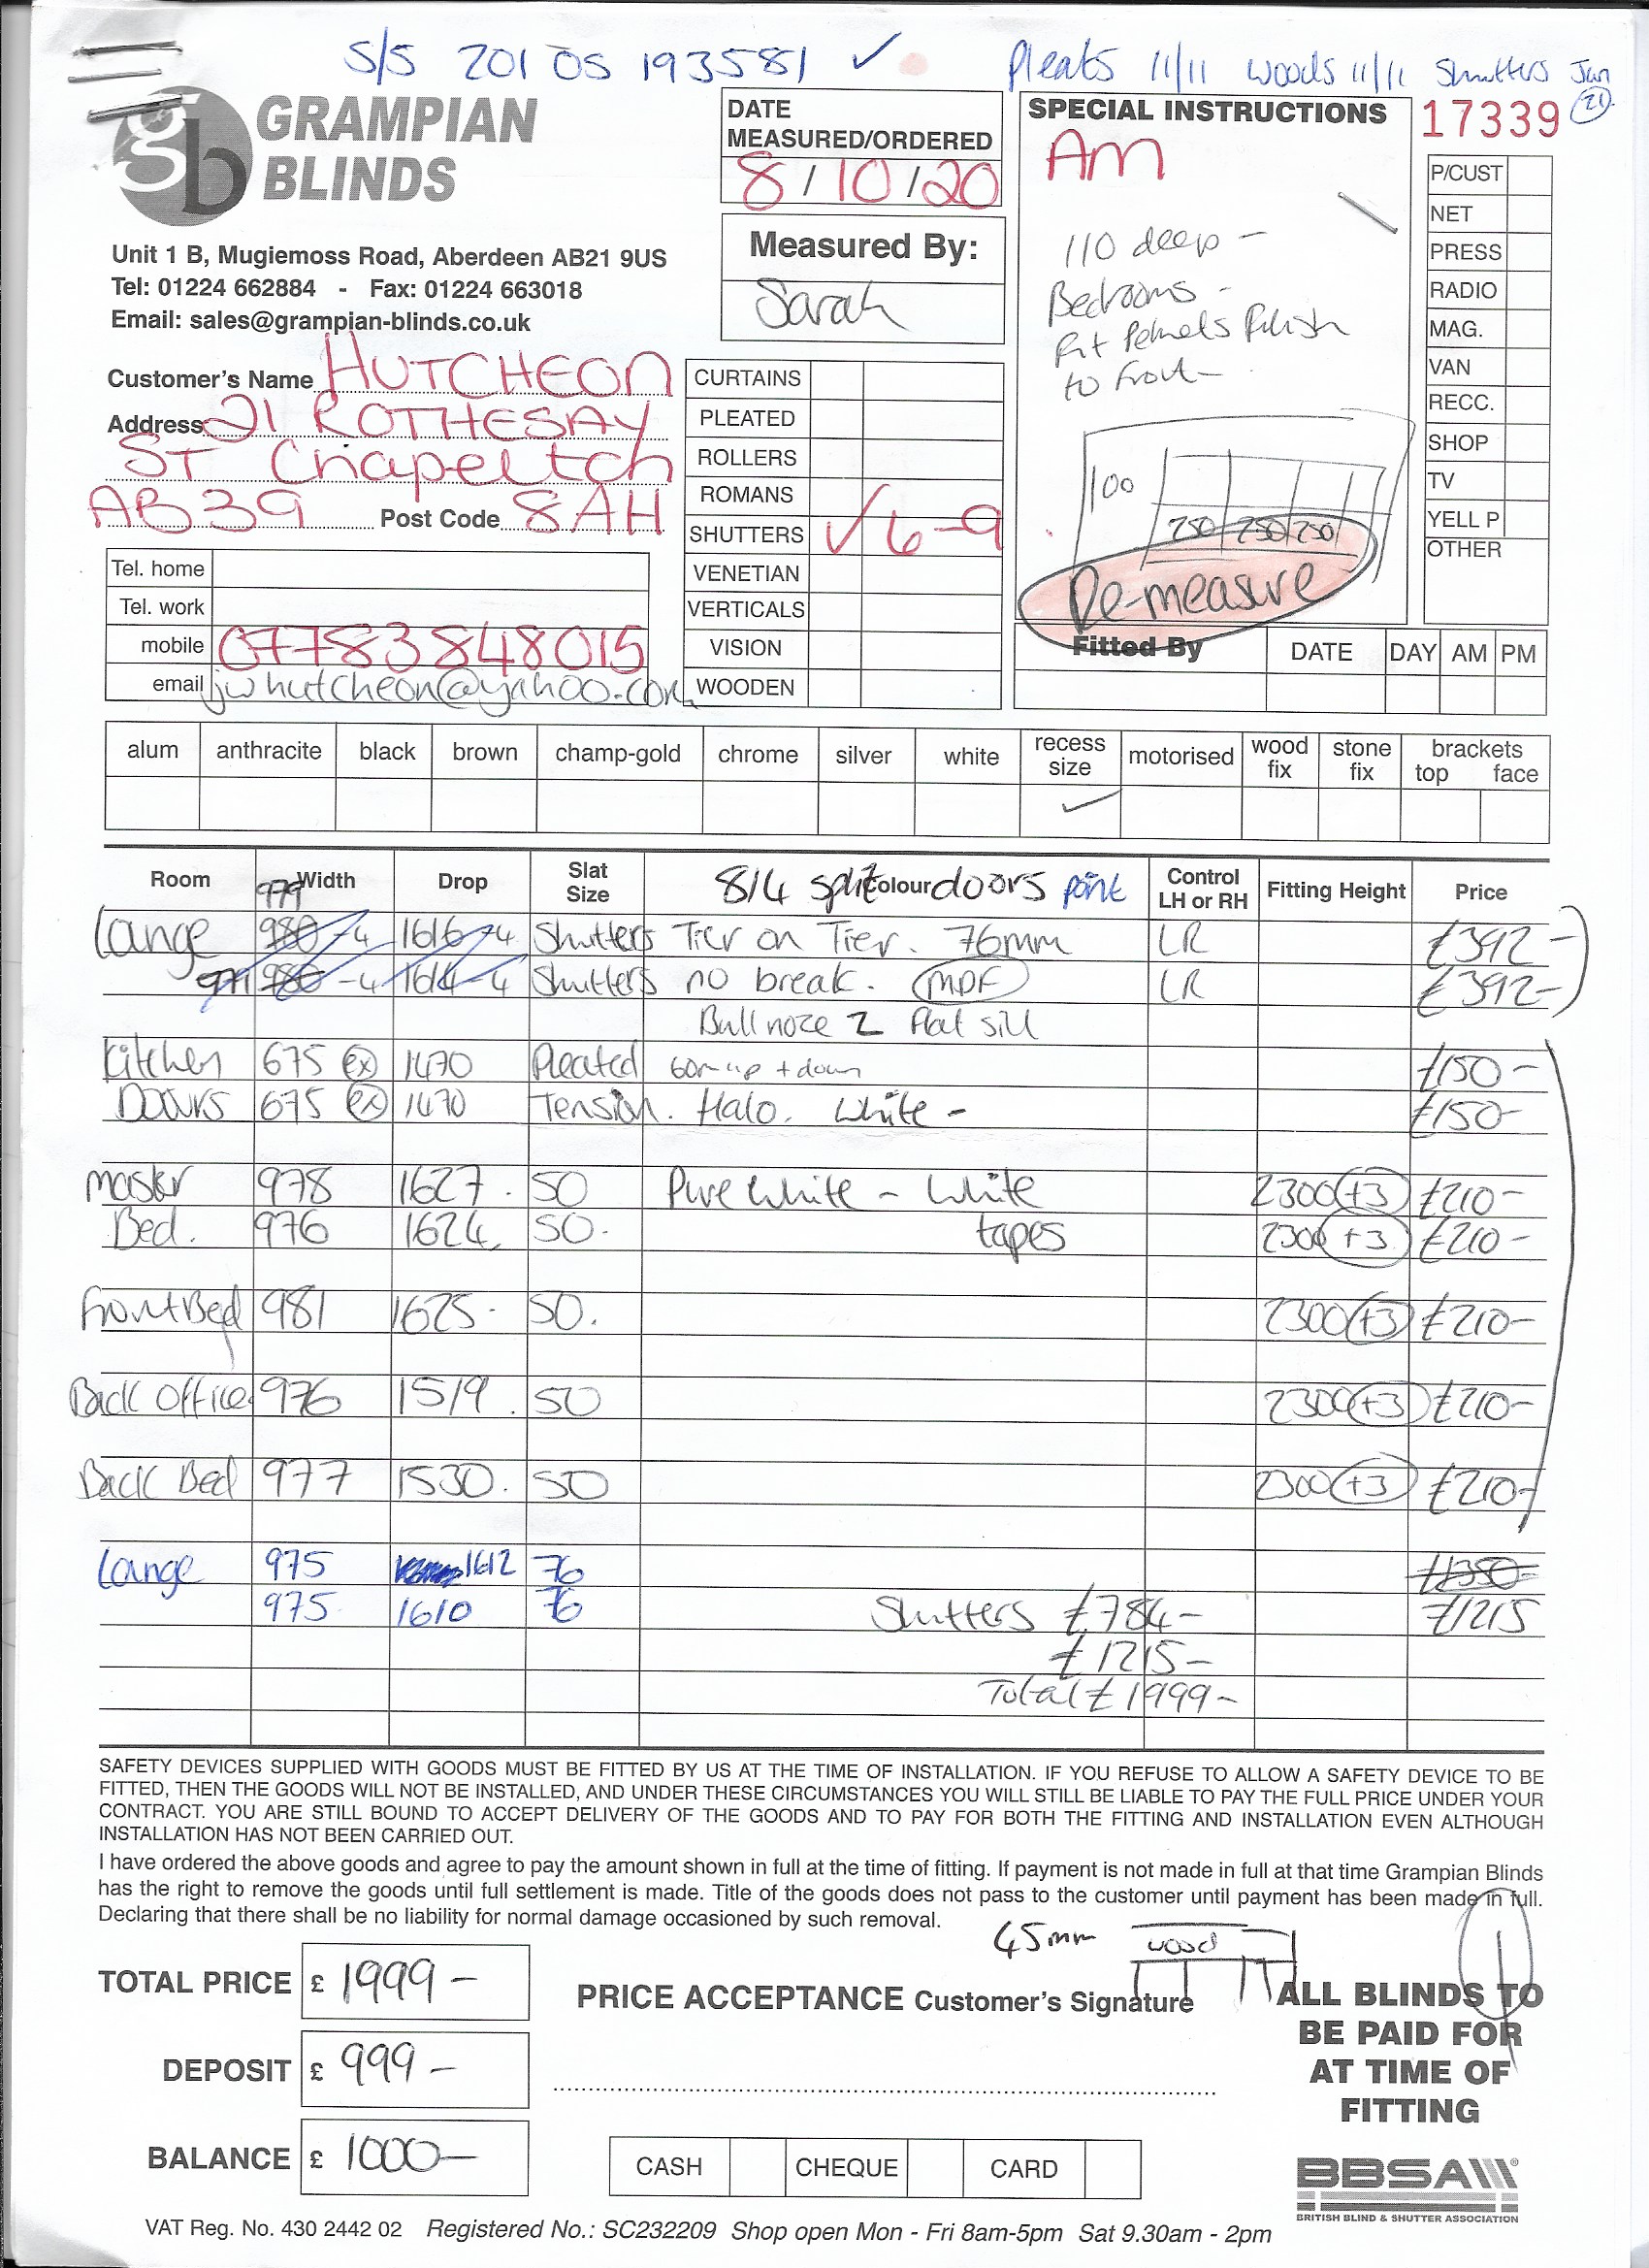 S/S 201 OS 193581 ✓ Pleats 11/11 Woods 11/11 Shutters Jan 21
GRAMPIAN
BLINDS
Unit 1 B, Mugiemoss Road, Aberdeen AB21 9US
Tel: 01224 662884 - Fax: 01224 663018
Email: sales@grampian-blinds.co.uk
DATE
MEASURED/ORDERED
8/10/20
Measured By:
Sarah
SPECIAL INSTRUCTIONS
AM
110 deep -
Bedrooms -
Fit Pelmets
to Front -
100
250 250 250
Re-measure
17339
P/CUST
NET
PRESS
RADIO
MAG.
VAN
RECC.
SHOP
TV
YELL P
OTHER
Customer's Name HUTCHEON
Address 21 ROTHESAY
ST Chapeltch
AB39 Post Code 8AH
Tel. home
Tel. work
mobile 07783848015
email jwhutcheon@yahoo.com
CURTAINS
PLEATED
ROLLERS
ROMANS
SHUTTERS ✓ 6-9
VENETIAN
VERTICALS
VISION
WOODEN
Fitted By DATE DAY AM PM
alum anthracite black brown champ-gold chrome silver white recess size motorised wood fix stone fix brackets top face
✓
Room Width Drop Slat Size Colour Control LH or RH Fitting Height Price
979 814 split doors
Lounge 980 -4 1616 -4 Shutters Tier on Tier. 76mm LR £392-
971 980 -4 1614 -4 Shutters no break. MDF LR £392-
Bullnoze Z Flat sill
Kitchen 675 ex 1470 Pleated up + down £150-
Doors 675 ex 1470 Tension. Halo. White - £150-
Master 978 1627. 50 Pure White - White 2300 +3 £210-
Bed. 976 1624 50. tapes 2300 +3 £210-
Front Bed 981 1625. 50. 2300 +3 £210-
Back Office 976 1519. 50 2300 +3 £210-
Back Bed 977 1530. 50 2300 +3 £210-
Lounge 975 1612 76 £1350-
975 1610 76 Shutters £784- £1215
£1215-
Total £1999-
SAFETY DEVICES SUPPLIED WITH GOODS MUST BE FITTED BY US AT THE TIME OF INSTALLATION. IF YOU REFUSE TO ALLOW A SAFETY DEVICE TO BE
FITTED, THEN THE GOODS WILL NOT BE INSTALLED, AND UNDER THESE CIRCUMSTANCES YOU WILL STILL BE LIABLE TO PAY THE FULL PRICE UNDER YOUR
CONTRACT. YOU ARE STILL BOUND TO ACCEPT DELIVERY OF THE GOODS AND TO PAY FOR BOTH THE FITTING AND INSTALLATION EVEN ALTHOUGH
INSTALLATION HAS NOT BEEN CARRIED OUT.
I have ordered the above goods and agree to pay the amount shown in full at the time of fitting. If payment is not made in full at that time Grampian Blinds
has the right to remove the goods until full settlement is made. Title of the goods does not pass to the customer until payment has been made in full.
Declaring that there shall be no liability for normal damage occasioned by such removal.
45mm wood
TOTAL PRICE £ 1999-
DEPOSIT £ 999-
BALANCE £ 1000-
PRICE ACCEPTANCE Customer's Signature
CASH CHEQUE CARD
ALL BLINDS TO
BE PAID FOR
AT TIME OF
FITTING
BBSA
BRITISH BLIND & SHUTTER ASSOCIATION
VAT Reg. No. 430 2442 02 Registered No.: SC232209 Shop open Mon - Fri 8am-5pm Sat 9.30am - 2pm